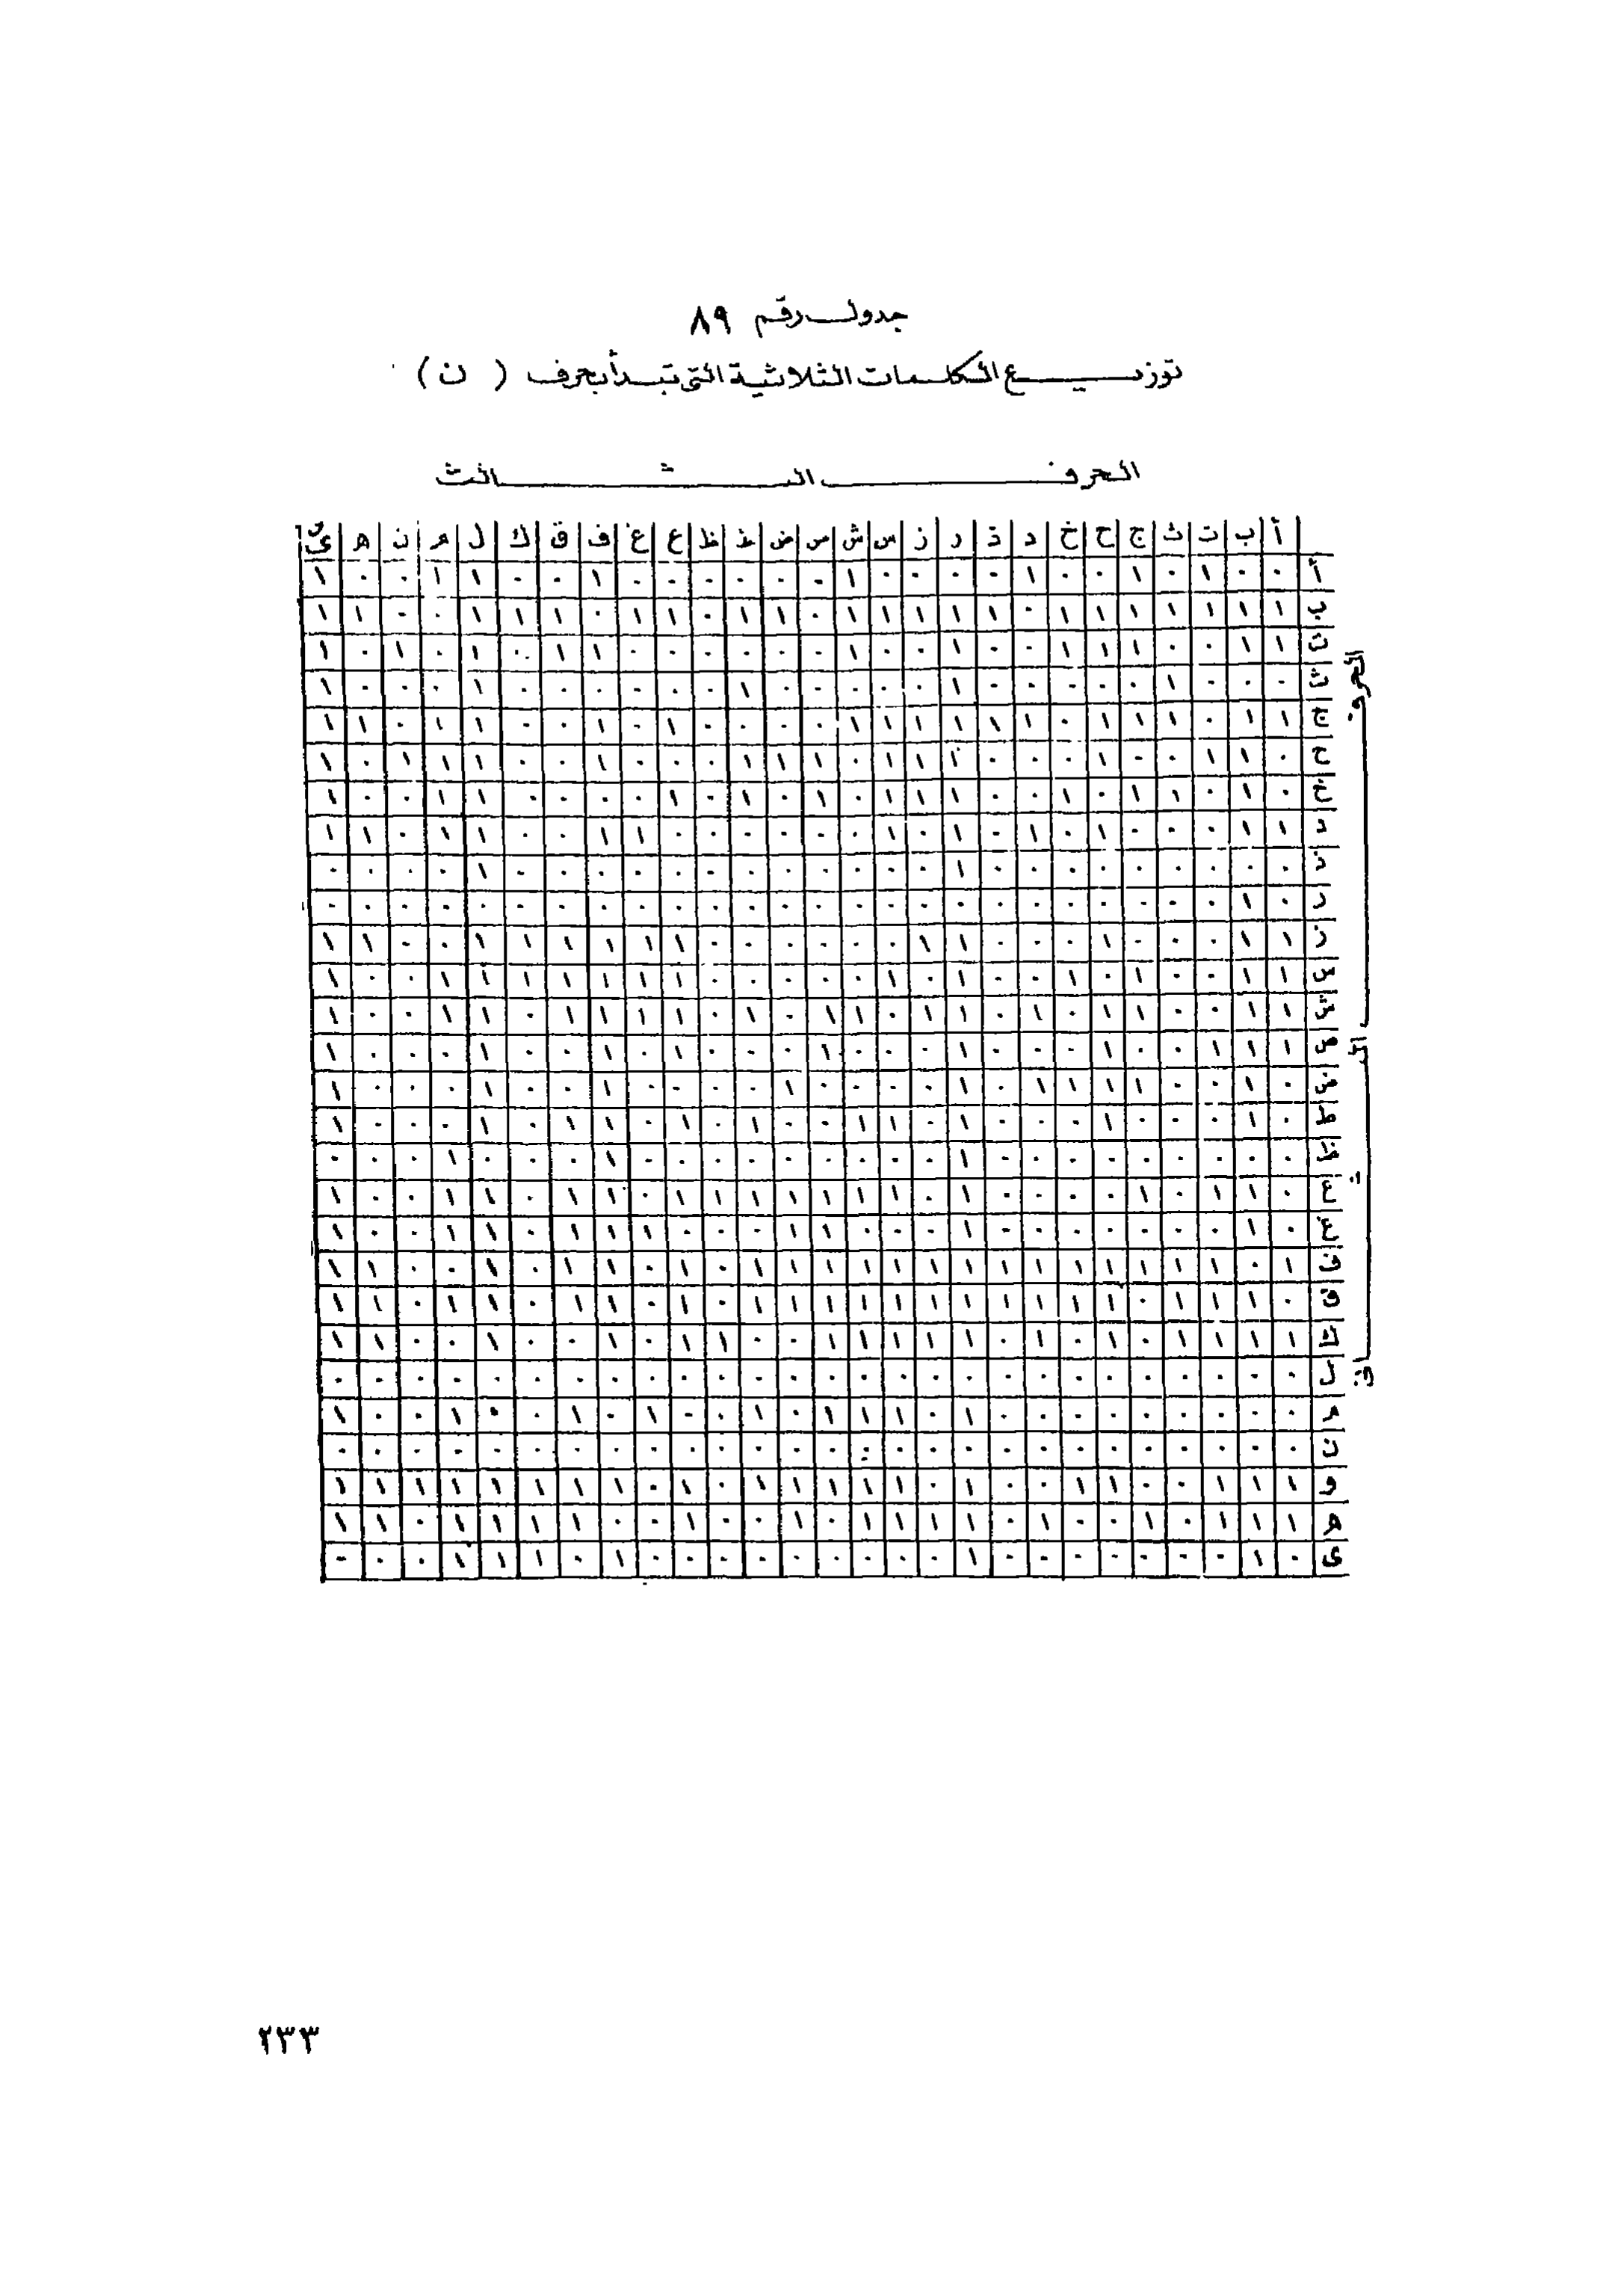 جدول رقم ٨٩
توزيع الكلمات الثلاثية التى تبدأ بحرف ( ن )
الحرف الثالث
أ ب ت ث ج ح خ د ذ ر ز س ش ص ض ط ظ ع غ ف ق ك ل م ن ه ى
أ ٠ ٠ ١ ٠ ١ ٠ ٠ ١ ٠ ٠ ٠ ٠ ١ ٠ ٠ ٠ ٠ ٠ ٠ ١ ٠ ٠ ١ ١ ٠ ٠ ١
ب ١ ١ ١ ١ ١ ١ ١ ٠ ١ ١ ١ ١ ١ ٠ ١ ١ ٠ ١ ١ ٠ ١ ١ ١ ٠ ٠ ١ ١
ت ١ ١ ٠ ٠ ١ ١ ١ ٠ ٠ ١ ٠ ٠ ١ ٠ ٠ ٠ ٠ ٠ ٠ ١ ١ ٠ ١ ٠ ١ ٠ ١
ث ٠ ٠ ٠ ١ ٠ ٠ ٠ ٠ ٠ ١ ٠ ٠ ٠ ٠ ٠ ١ ٠ ٠ ٠ ٠ ٠ ٠ ١ ٠ ٠ ٠ ١
ج ١ ١ ٠ ١ ١ ١ ٠ ١ ١ ١ ١ ١ ١ ٠ ٠ ٠ ٠ ١ ٠ ١ ٠ ٠ ١ ١ ٠ ١ ١
ح ٠ ١ ١ ٠ ٠ ١ ٠ ٠ ٠ ١ ١ ١ ٠ ١ ١ ١ ٠ ٠ ٠ ١ ٠ ٠ ١ ١ ١ ٠ ١
خ ٠ ١ ٠ ١ ١ ٠ ١ ٠ ٠ ١ ١ ١ ٠ ١ ٠ ١ ٠ ١ ٠ ٠ ٠ ٠ ١ ١ ٠ ٠ ١
د ١ ١ ٠ ٠ ٠ ١ ٠ ١ ٠ ١ ٠ ١ ٠ ٠ ٠ ٠ ٠ ٠ ١ ١ ٠ ٠ ١ ١ ٠ ١ ١
ذ ٠ ٠ ٠ ٠ ٠ ٠ ٠ ٠ ٠ ١ ٠ ٠ ٠ ٠ ٠ ٠ ٠ ٠ ٠ ٠ ٠ ٠ ١ ٠ ٠ ٠ ٠
ر ٠ ١ ٠ ٠ ٠ ٠ ٠ ٠ ٠ ٠ ٠ ٠ ٠ ٠ ٠ ٠ ٠ ٠ ٠ ٠ ٠ ٠ ٠ ٠ ٠ ٠ ٠
ز ١ ١ ٠ ٠ ٠ ١ ٠ ٠ ٠ ١ ١ ٠ ٠ ٠ ٠ ٠ ٠ ١ ١ ١ ١ ١ ١ ٠ ٠ ١ ١
س ١ ١ ٠ ٠ ١ ٠ ١ ٠ ٠ ١ ٠ ١ ٠ ٠ ٠ ٠ ٠ ١ ١ ١ ١ ١ ١ ١ ٠ ٠ ١
ش ١ ١ ٠ ٠ ١ ١ ٠ ١ ٠ ١ ١ ٠ ١ ١ ٠ ١ ٠ ١ ١ ١ ١ ٠ ١ ١ ٠ ٠ ١
ص ١ ١ ١ ٠ ٠ ١ ٠ ٠ ٠ ١ ٠ ٠ ٠ ١ ٠ ٠ ٠ ١ ٠ ١ ٠ ٠ ١ ٠ ٠ ٠ ١
ض ٠ ١ ٠ ٠ ١ ١ ١ ١ ٠ ١ ٠ ٠ ٠ ٠ ١ ٠ ٠ ٠ ٠ ١ ٠ ٠ ١ ٠ ٠ ٠ ١
ط ٠ ١ ٠ ٠ ٠ ١ ٠ ٠ ٠ ١ ٠ ١ ١ ٠ ٠ ١ ٠ ١ ٠ ١ ١ ٠ ١ ٠ ٠ ٠ ١
ظ ٠ ٠ ٠ ٠ ٠ ٠ ٠ ٠ ٠ ١ ٠ ٠ ٠ ٠ ٠ ٠ ٠ ٠ ٠ ١ ٠ ٠ ٠ ١ ٠ ٠ ٠
ع ٠ ١ ١ ٠ ١ ٠ ٠ ٠ ٠ ١ ٠ ١ ١ ١ ١ ١ ١ ١ ٠ ١ ١ ٠ ١ ١ ٠ ٠ ١
غ ٠ ١ ٠ ٠ ٠ ٠ ٠ ٠ ٠ ١ ٠ ٠ ٠ ١ ١ ٠ ٠ ٠ ١ ١ ١ ٠ ١ ١ ٠ ٠ ١
ف ١ ٠ ١ ١ ١ ١ ١ ١ ١ ١ ١ ١ ١ ١ ١ ١ ٠ ١ ٠ ١ ١ ٠ ١ ٠ ٠ ١ ١
ق ٠ ١ ١ ١ ٠ ١ ١ ١ ١ ١ ١ ١ ١ ١ ١ ١ ٠ ١ ٠ ١ ١ ٠ ١ ١ ٠ ١ ١
ك ١ ١ ١ ١ ٠ ١ ٠ ١ ٠ ١ ١ ١ ١ ١ ٠ ٠ ١ ١ ٠ ١ ٠ ٠ ١ ٠ ٠ ١ ١
ل ٠ ٠ ٠ ٠ ٠ ٠ ٠ ٠ ٠ ٠ ٠ ٠ ٠ ٠ ٠ ٠ ٠ ٠ ٠ ٠ ٠ ٠ ٠ ٠ ٠ ٠ ٠
م ٠ ٠ ٠ ٠ ٠ ٠ ٠ ٠ ٠ ١ ٠ ١ ١ ١ ٠ ١ ٠ ٠ ١ ٠ ١ ٠ ٠ ١ ٠ ٠ ١
ن ٠ ٠ ٠ ٠ ٠ ٠ ٠ ٠ ٠ ٠ ٠ ٠ ٠ ٠ ٠ ٠ ٠ ٠ ٠ ٠ ٠ ٠ ٠ ٠ ٠ ٠ ٠
و ١ ١ ١ ٠ ٠ ١ ١ ٠ ٠ ١ ٠ ١ ١ ١ ١ ١ ٠ ١ ٠ ١ ١ ١ ١ ١ ١ ١ ١
ه ١ ١ ١ ٠ ١ ٠ ٠ ١ ٠ ١ ١ ١ ١ ٠ ١ ٠ ٠ ١ ٠ ٠ ١ ١ ١ ١ ٠ ١ ١
ى ٠ ١ ٠ ٠ ٠ ٠ ٠ ٠ ٠ ١ ٠ ٠ ٠ ٠ ٠ ٠ ٠ ٠ ٠ ١ ٠ ١ ١ ١ ٠ ٠ ٠
الحرف الثانى
٢٣٣